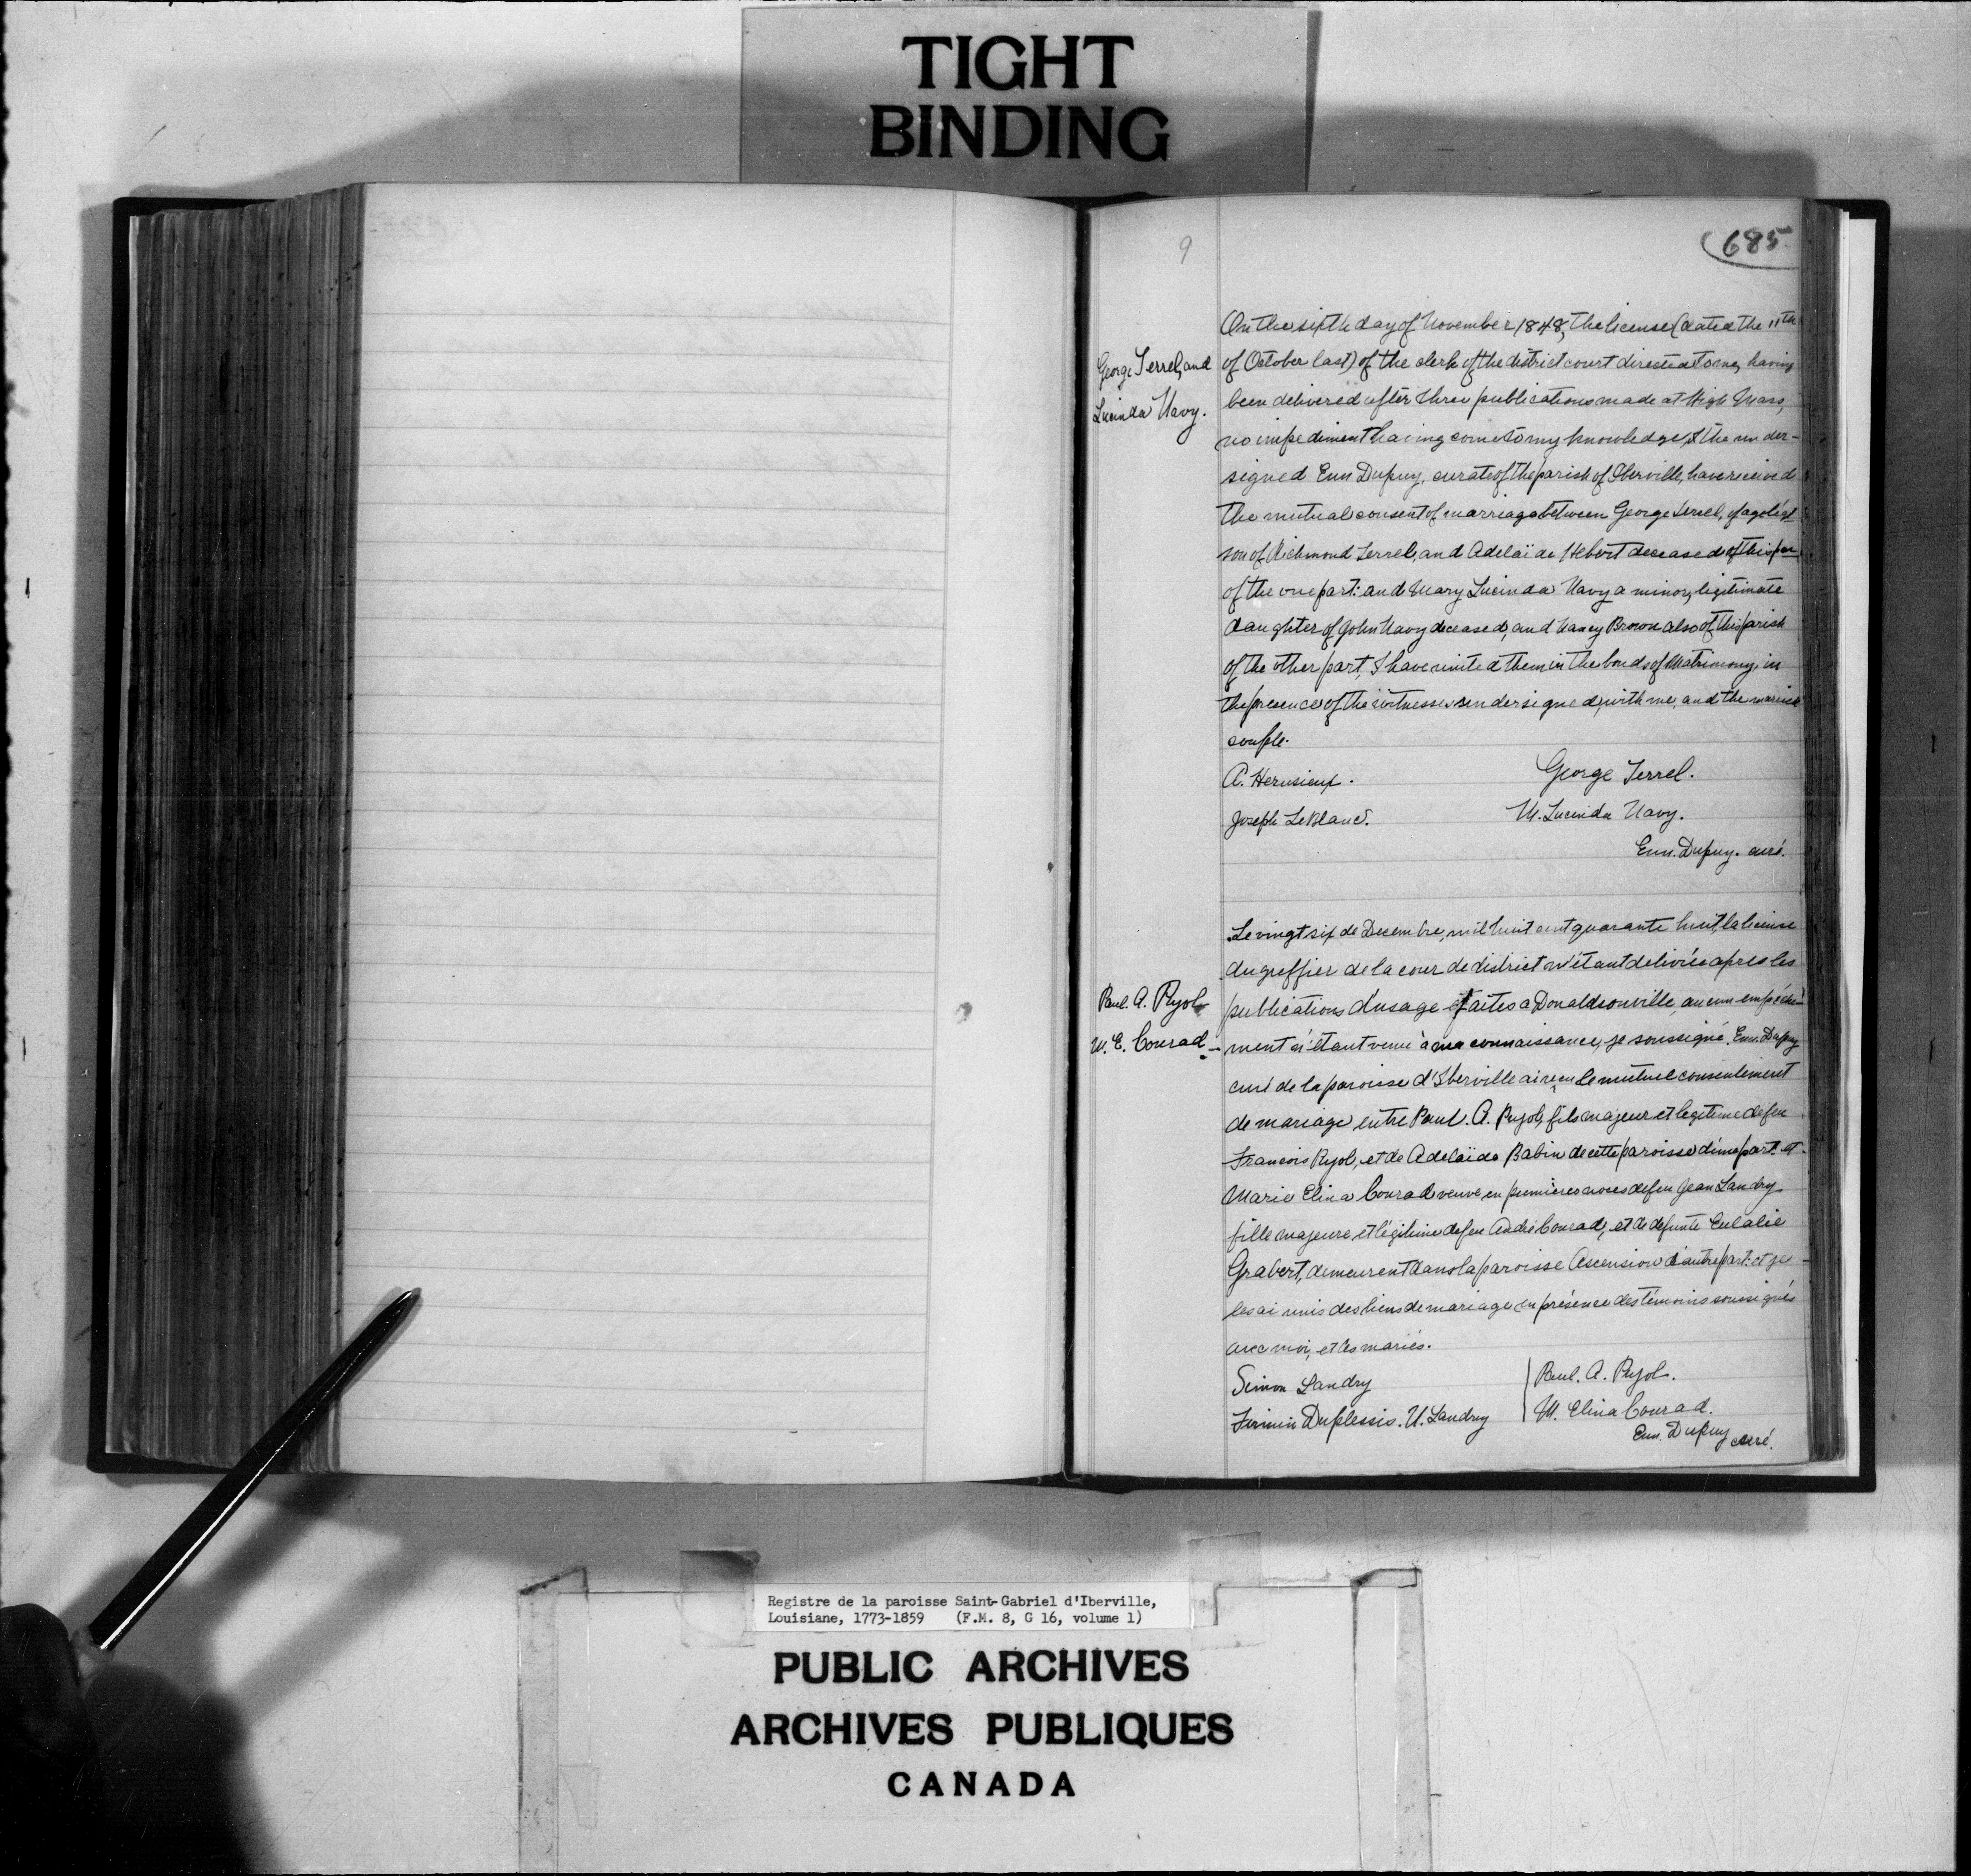 TIGHT
BINDING
9
685
George Terrel, and
Lucinda Navy.
On the sixth day of November 1848, the license (dated the 11th
of October last) of the clerk of the district court directed to me, having
been delivered after three publications made at High Mass,
no impediment having come to my knowledge, I the under-
signed Enn Dupuy, curate of the parish of Iberville, have received
the mutual consent of marriage between George Terrel, of age legt
son of Richmond Terrel, and Adelaïde Hebert deceased of this par.
of the one part: and Mary Lucinda Navy a minor, legitimate
daughter of John Navy deceased, and Nancy Brown also of this parish
of the other part, I have united them in the bonds of Matrimony, in
the presence of the witnesses undersigned, with me, and the married
couple.
A. Herusieux.
George Terrel.
Joseph LeBlanc.
M. Lucinda Navy.
Enn. Dupuy. curé.
Paul. A. Pujol
M. E. Conrad -
Le vingt six de Decembre, mil huit cent quarante huit, la license
du greffier de la cour de district m'étant delivrée apres les
publications d'usage faites a Donaldsonville, aucun empéche-
ment n'étant venu à ma connaissance, je soussigné Enn. Dupuy
curé de la paroisse d'Iberville ai reçu le mutuel consentement
de mariage entre Paul. A. Pujol, fils majeur et legitime de feu
Francois Pujol, et de Adelaïde Babin de cette paroisse d'une part. et
Marie Elina Conrad veuve en premières noces de feu Jean Landry
fille majeure et légitime de feu André Conrad, et de defunte Eulalie
Grabert, demeurent dans la paroisse Ascension d'autre part: et je
les ai unis des liens de mariage en présence des témoins soussignés
avec moi, et les mariés.
Simon Landry
Paul. A. Pujol.
Firmin Duplessis. U. Landry
M. Elina Conrad.
Enn. Dupuy curé.
Registre de la paroisse Saint-Gabriel d'Iberville,
Louisiane, 1773-1859 (F.M. 8, G 16, volume 1)
PUBLIC ARCHIVES
ARCHIVES PUBLIQUES
CANADA